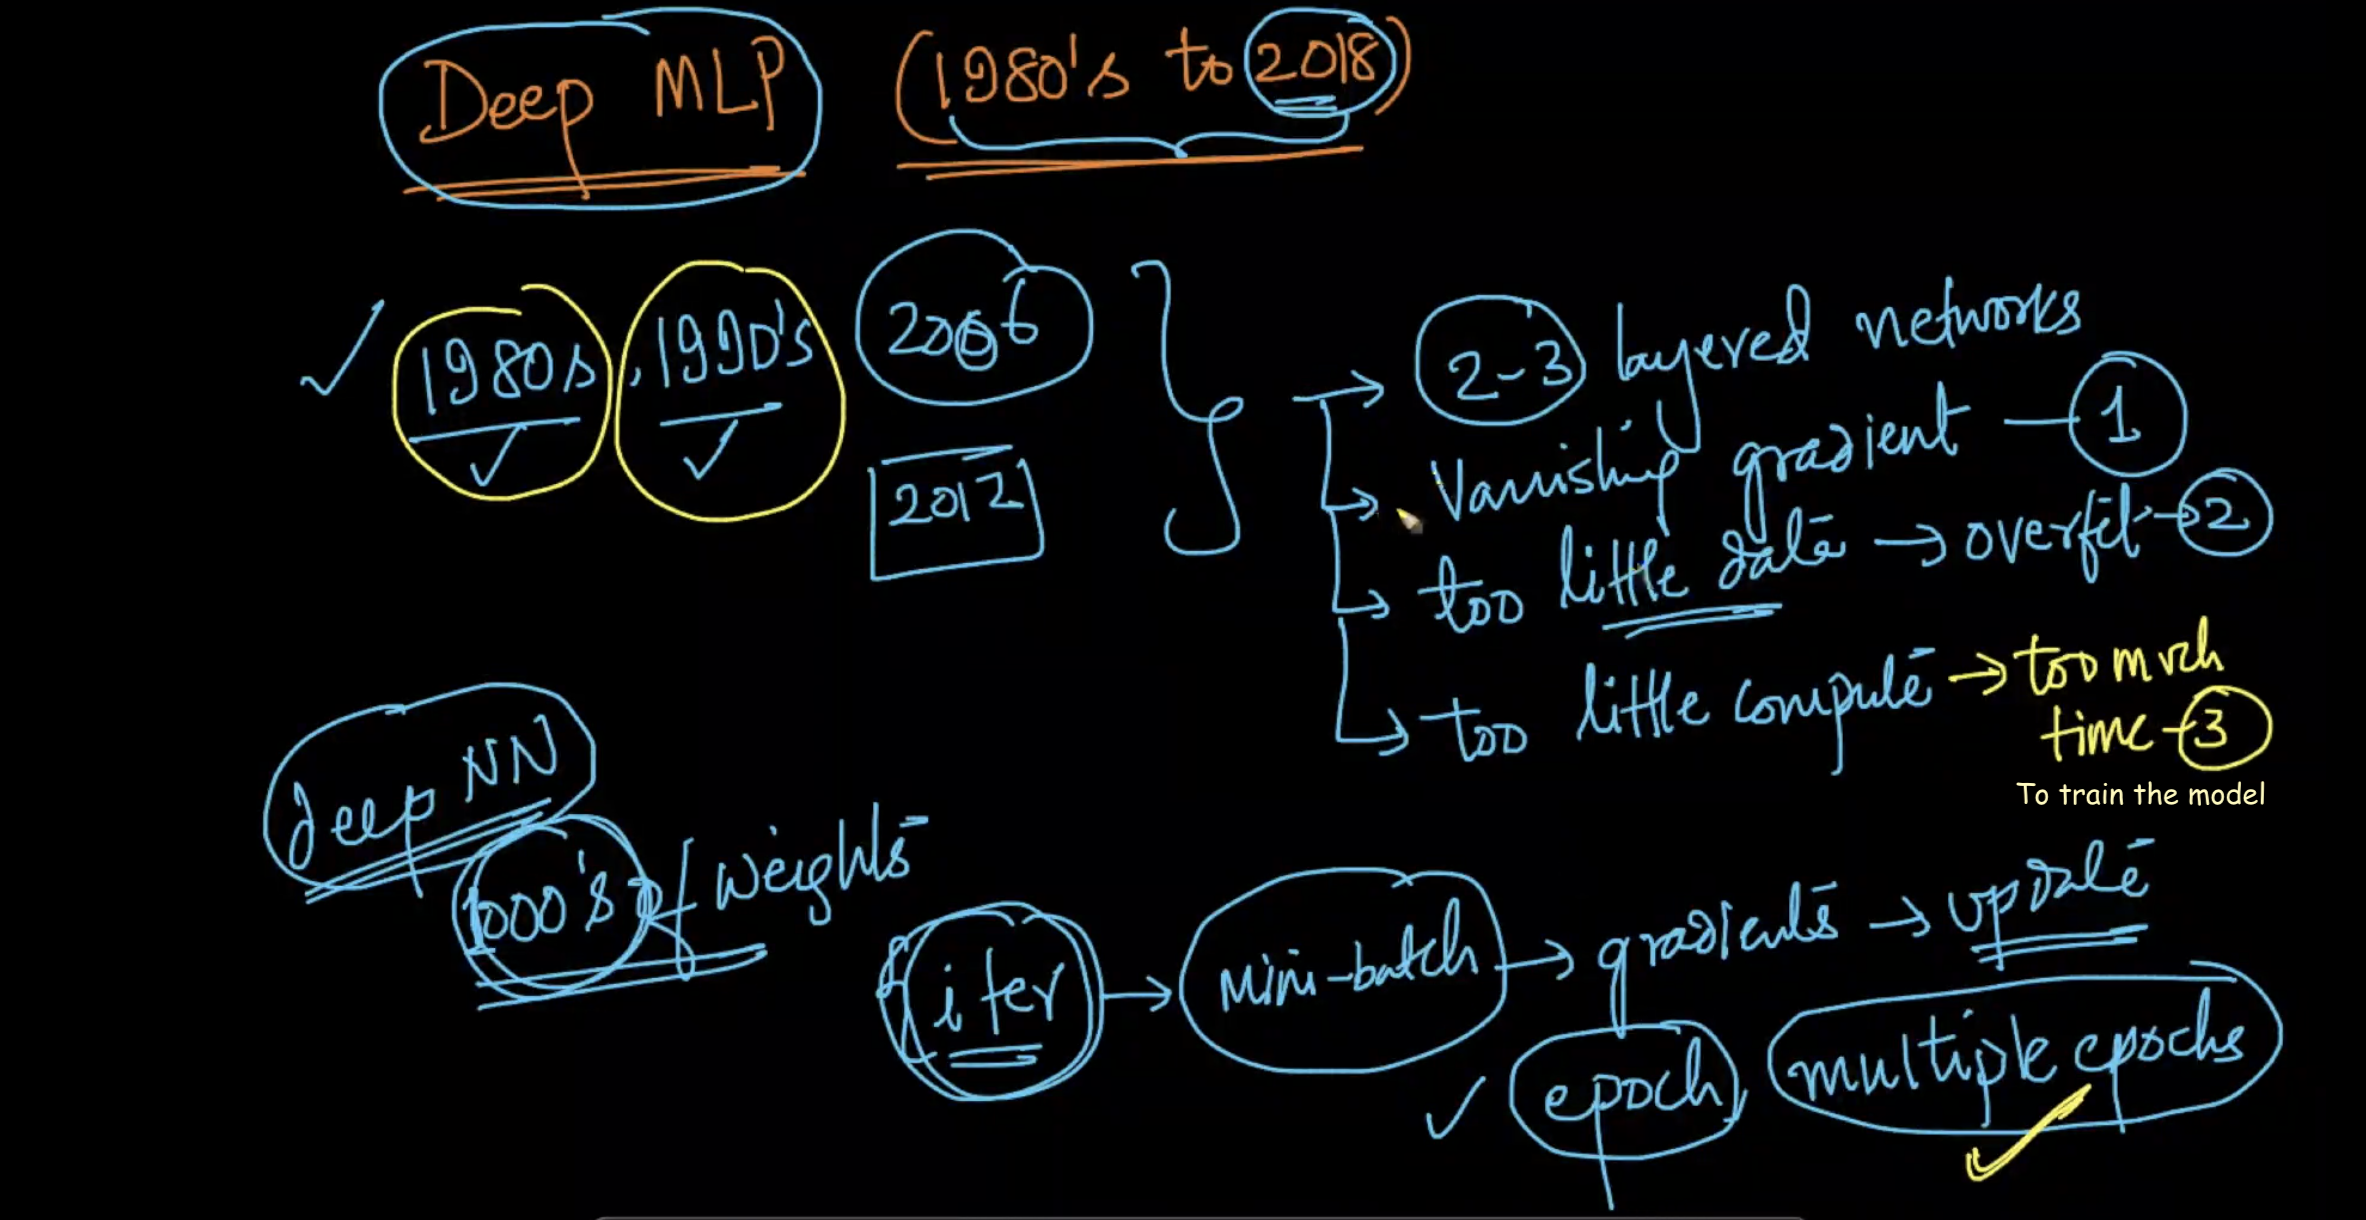 Deep MLP (1980's to 2018)
1980s, 1990's 2006
2012
2-3 layered networks
Vanishing gradient - 1
too little data → overfit → 2
too little compute → too much
time - 3
To train the model
deep NN
1000's of weights
iter → Mini-batch → gradients → update
epoch, multiple epochs